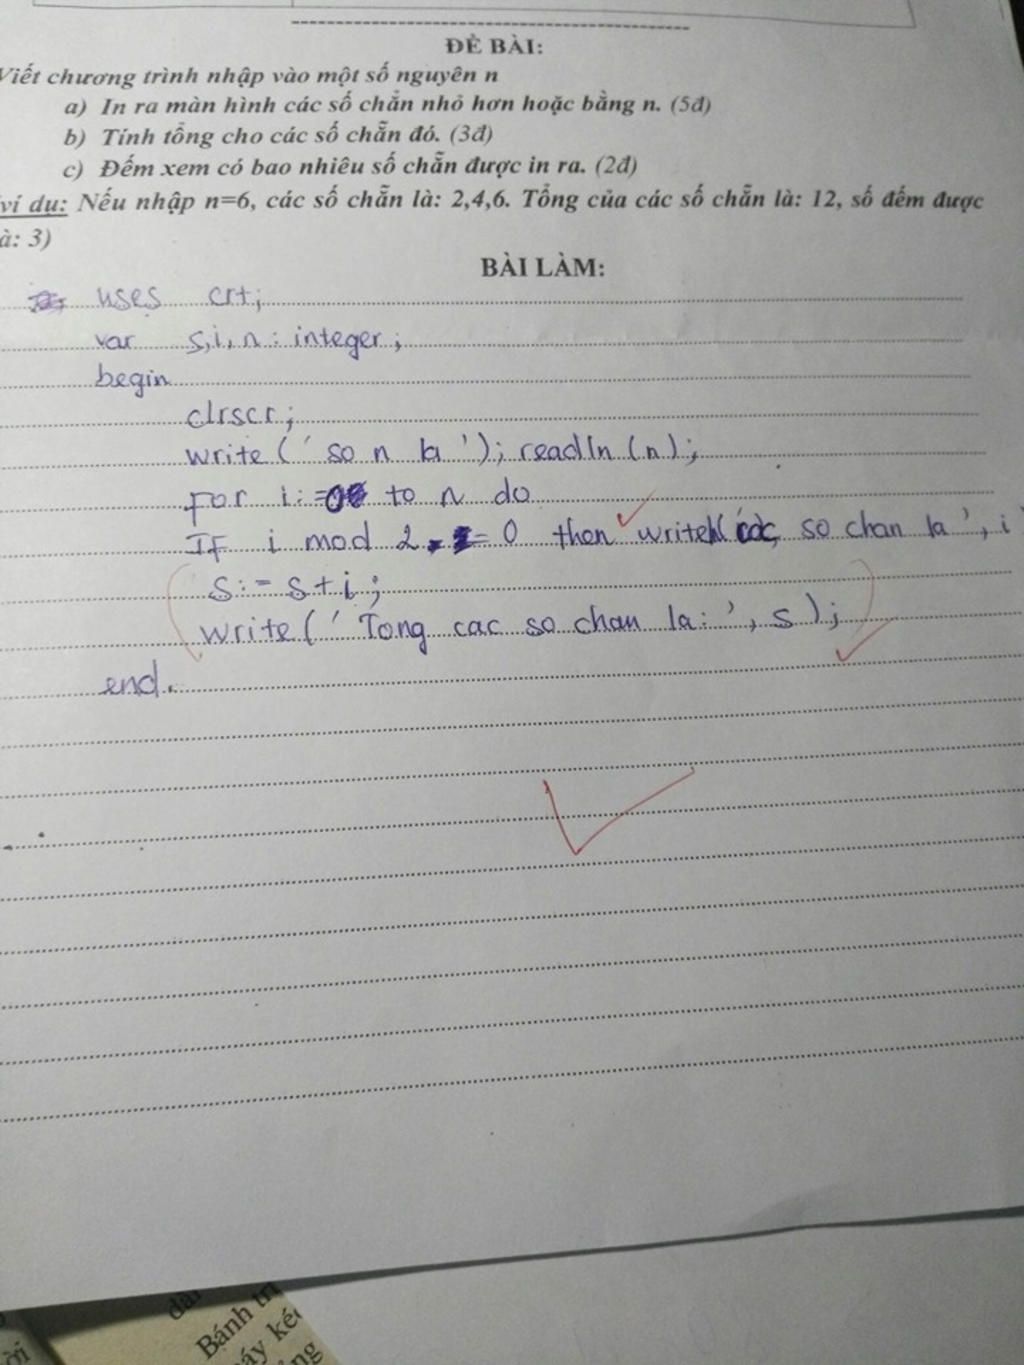 ĐỀ BÀI:
Viết chương trình nhập vào một số nguyên n
a) In ra màn hình các số chẵn nhỏ hơn hoặc bằng n. (5đ)
b) Tính tổng cho các số chẵn đó. (3đ)
c) Đếm xem có bao nhiêu số chẵn được in ra. (2đ)
ví dụ: Nếu nhập n=6, các số chẵn là: 2,4,6. Tổng của các số chẵn là: 12, số đếm được
à: 3)
BÀI LÀM:
uses crt;
var s,i,n : integer;
begin
clrscr;
write (' so n la '); readln (n);
For i:=0 to n do
IF i mod 2 = 0 then writeln( cac so chan la ', i
s:= s+i;
write (' Tong cac so chan la: ', s);
end.
Bánh